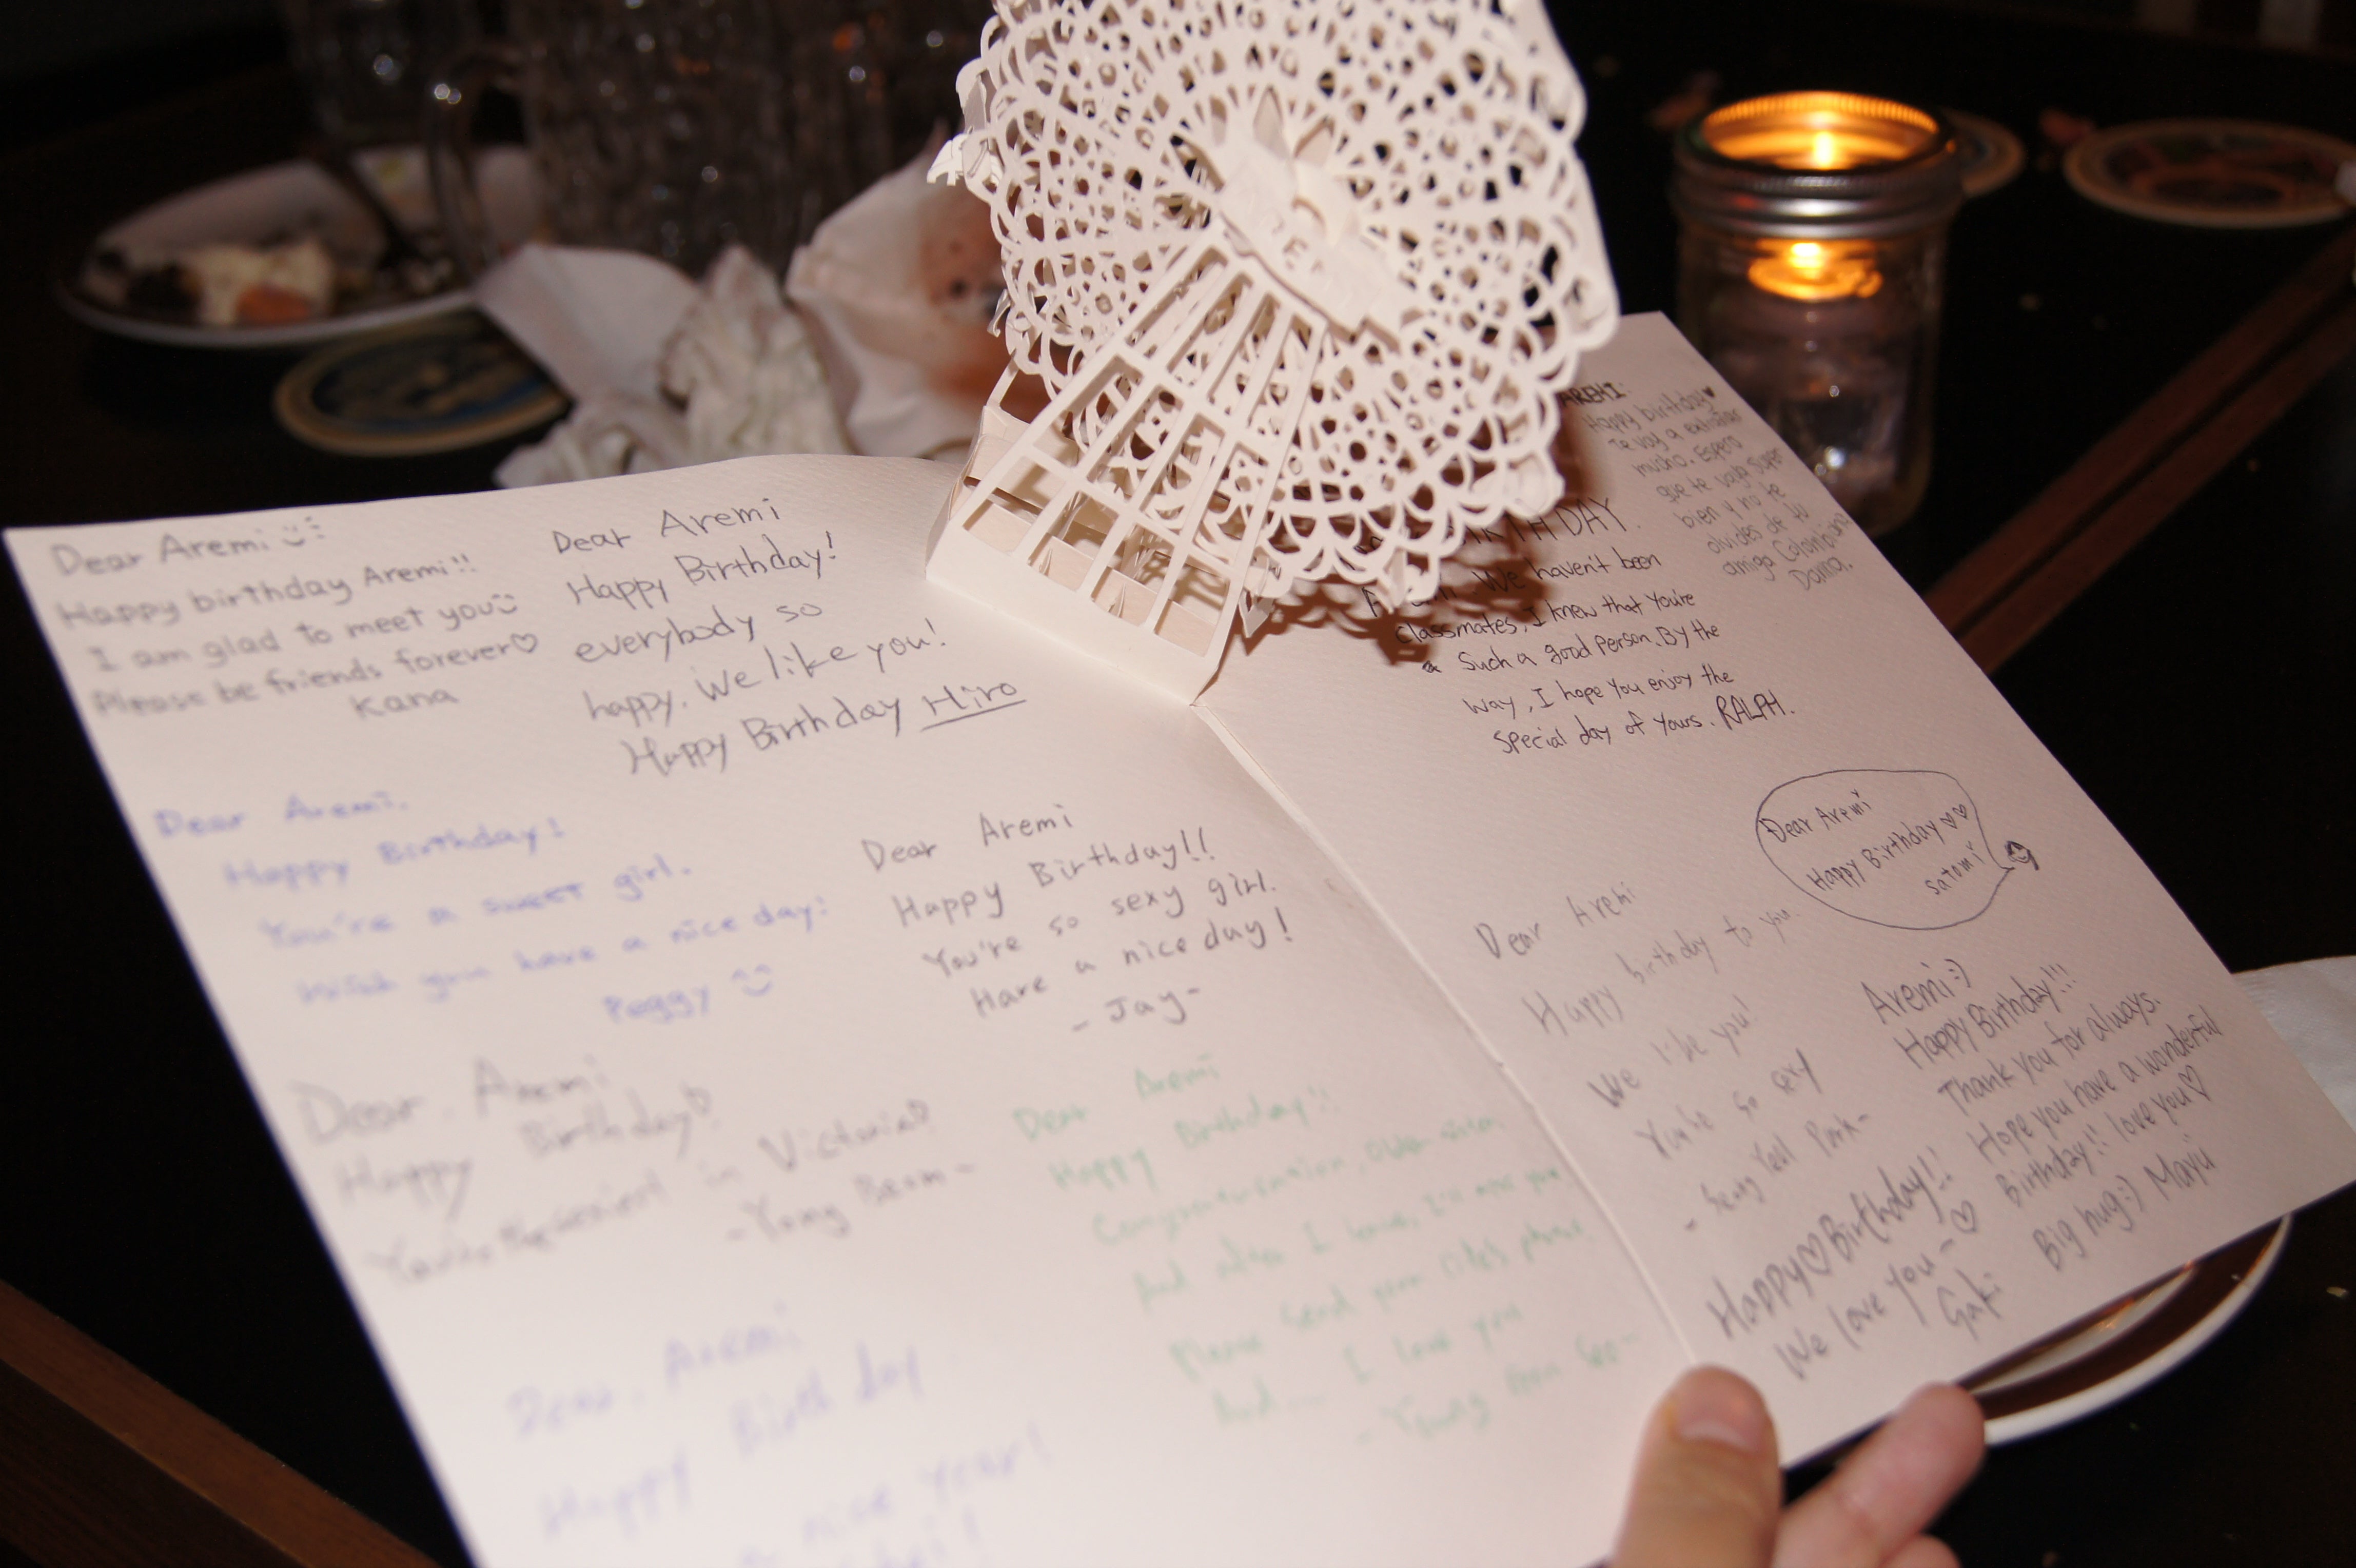 Dear Aremi
Happy birthday Aremi!!
I am glad to meet you
Please be friends forever♡
Kana
Dear Aremi
Happy Birthday!
everybody so
happy. We like you!
Happy Birthday Hiro
Dear Aremi.
Happy Birthday!
You're a sweet girl.
Wish you have a nice day!
Peggy
Dear Aremi
Happy Birthday!!
You're so sexy girl.
Have a nice day!
-Jay-
Dear. Aremi
Happy Birthday♡
You're the sexiest in Victoria♡
-Young Beom-
Dear Aremi
Happy Birthday!!
Congratulation, older sister.
And when I leave, I'll miss you
Please send your phone
And... I love you
Dear. Aremi
Happy Birth day
nice year!
AREMI:
Happy birthday♥
Te voy a extrañar
mucho. Espero
que te vaya super
bien y no te
olvides de tu
amiga Colombiana
BIRTHDAY.
We haven't been
classmates, I knew that you're
Such a good person. By the
way, I hope you enjoy the
special day of yours. RALPH.
Dear Aremi
Happy Birthday ♡♡
satomi
Dear Aremi
Happy birthday to you.
We like you!
You're so
Park-
Aremi :)
Happy Birthday!!!
Thank you for always.
Hope you have a wonderful
Birthday!! love you♡
Big hug :) Mayu
Happy♡Birthday!!
We love you~♡
Gaki